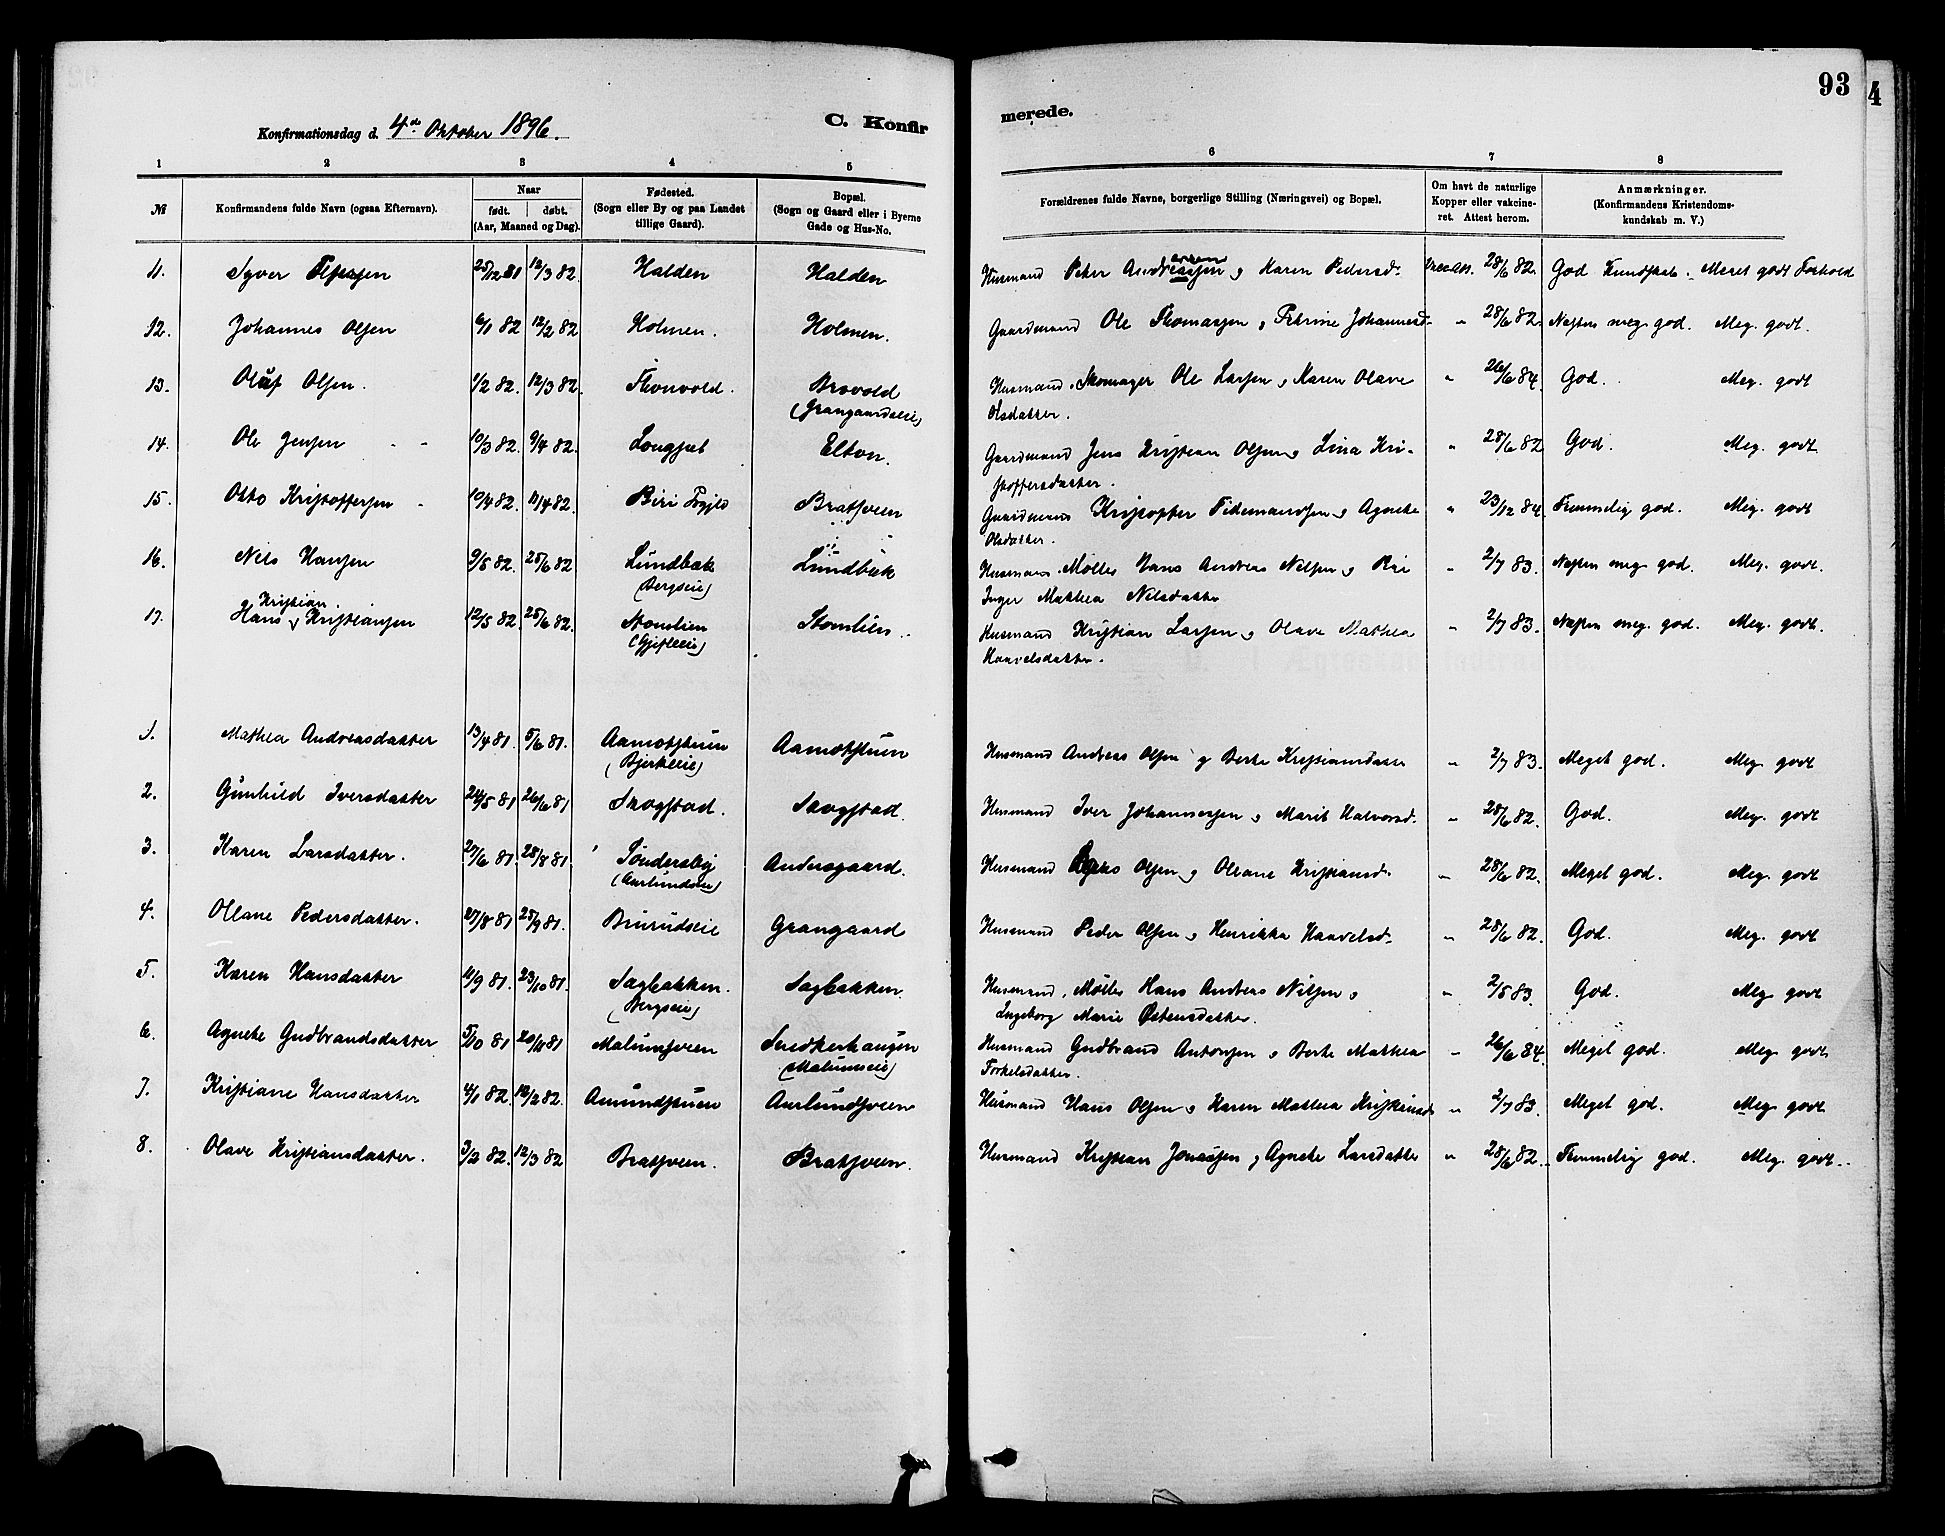 93
4
Konfirmationsdag d. 4de Oktober 1896.
C. Konfirmerede.
1 2 3 4 5 6 7 8
№ Konfirmandens fulde Navn (ogsaa Efternavn). Naar født. døbt. (Aar, Maaned og Dag). Fødested. (Sogn eller By og paa Landet tillige Gaard). Bopæl. (Sogn og Gaard eller i Byerne Gade og Hus-No. Forældrenes fulde Navne, borgerlige Stilling (Næringsvei) og Bopæl. Om havt de naturlige Kopper eller vakcineret. Attest herom. Anmærkninger. (Konfirmandens Kristendomskundskab m. V.)
11. Syver 25/12 81 12/3 82. Halden Halden Husmand Peter Andreassen g Karen Pedersd. 28/6 82. God Kundskab. Meget godt Forhold
12. Johannes Olsen 6/1 82 12/2 82. Holmen. Holmen. Gaardmand Ole Thomassen g Petrine Johannesd. " 28/6 82. Næsten meg god. Meg. godt.
13. Oluf Olsen. 1/2 82. 12/3 82. Brovold Husmand, Skomager Ole Larsen g Karen Olave " 26/6 84. God. Meg. godt
(Grangaardseie) Olsdatter.
14. Ole Jensen 10/3 82. 9/4 82. Elton. Gaardmand Jens Kristian Olsen g Lina Kri- " 28/6 82 God. Meg. godt
stoffersdatter.
15. Otto Kristoffersen 10/4 82. 11/4 82. Biri Bratsveen Gaardmand Kristoffer Tidemandsen g Agnete " 23/12 84. Temmelig god. Meg. godt
Olsdatter.
16. Nils Hansen 9/5 82. 25/6 82 Lundbæk Lundbæk Husmand, Møller Hans Andreas Nilsen g " 2/7 83. Næsten meg god. Meg. godt.
(Bergseie) Inger Mathea Nilsdatter
17. Hans Kristian Kristiansen 12/5 82. 25/6 82. Stomlien Stomlien. Husmand Kristian Larsen g Olave Mathea " 2/7 83. Næsten meg. god. Meg. godt.
(Gjefleeie) Haavelsdatter.
1. Mathea Andreasdatter 13/4 81. 5/6 81. Aamotstuen Aamotstuen Husmand Andreas Olsen g Berte Kristiansdatter " 2/7 83. Meget god. Meg godt
(Bjerkeeie)
2. Gunhild Iversdatter 24/5 81 26/6 81 Skogstad. Skogstad. Husmand Iver Johannessen g Marit Halvorsd. " 28/6 82. God. Meg. godt
3. Karen Larsdatter. 27/6 81. 28/8 81. Sønderslig Andersgaard. Husmand Lars Olsen g Oleane Kristiansd. " 28/6 82. Meget god. Meg. godt
(Aurlundseie)
4. Oleane Pedersdatter. 27/8 81 25/9 81. Brurudseie Grangaard Husmand Peder Olsen g Henrikka Haavelsd. " 28/6 82. God. Meg. godt
5. Karen Hansdatter 11/9 81. 23/10 81. Sagbakken. Sagbakken. Husmand, Møller Hans Andreas Nilsen g " 2/5 83. God. Meg godt
(Bergseie) Ingeborg Marie Østensdatter.
6. Agnete Gudbrandsdatter 5/10 81 20/11 81 Malumsveen Snedkerhaugen Husmand Gudbrand Antonsen g Berte Mathea " 26/6 84. Meget god. Meg godt
(Malumseie) Torkelsdatter.
7. Kristiane Hansdatter 4/1 82. 12/2 82. Amundstuen Aurlundsveen Husmand Hans Olsen g Karen Mathea Kristiansd " 2/7 83. Meget god. Meg godt
8. Olave Kristiansdatter. 3/2 82. 12/3 82 Bratsveen. Bratsveen. Husmand Kristian Jonassen g Agnete Larsdatter " 28/6 82. Temmelig god. Meg. godt.